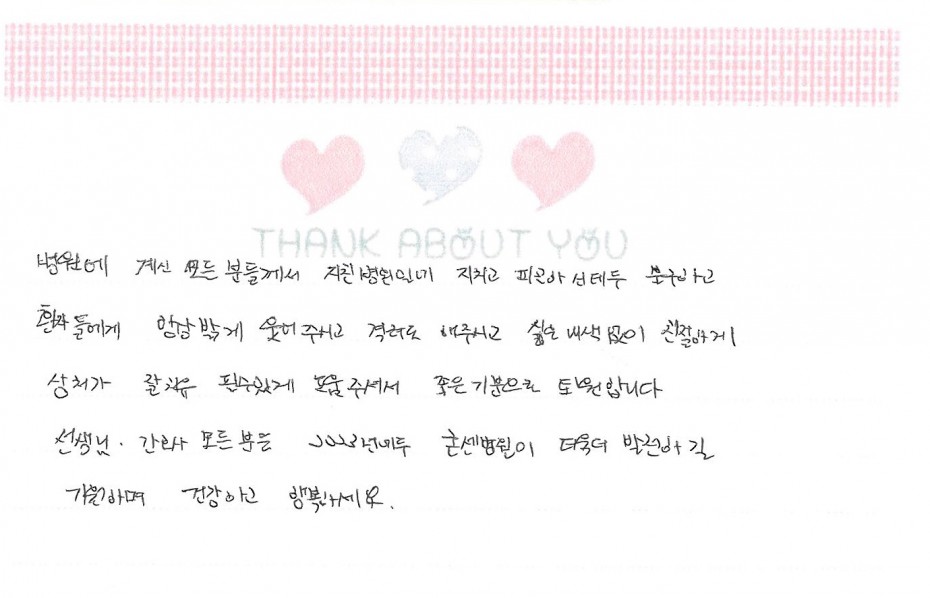 THANK ABOUT YOU
병원에 계신 모든 분들께서 지친병원인데 지치고 피곤하신데두 불구하고
환자들에게 항상 밝게 웃어주시고 격려도 해주시고 싫은 내색 없이 친절하게
상처가 잘 치유 될수있게 도움 주셔서 좋은 기분으로 퇴원합니다
선생님. 간호사 모든 분들 2023년에두 굳센병원이 더욱더 발전하길
기원하며 건강하고 행복하세요.